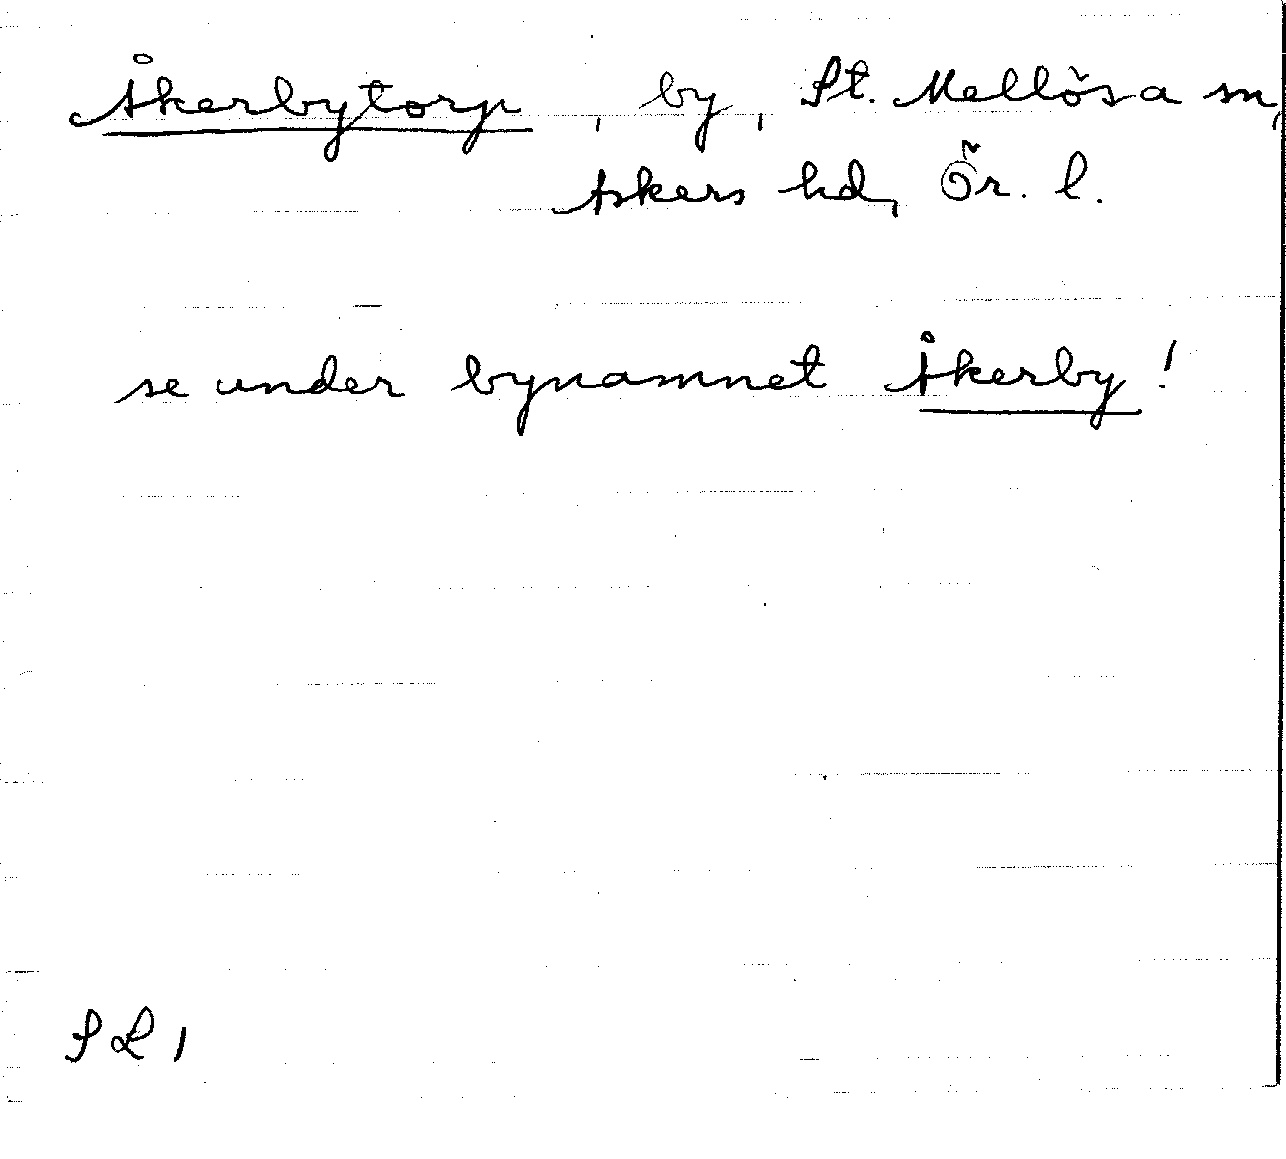 Åkerbytorp, by, St. Mellösa sn,
Askers hd, Ör. l.
se under bynamnet Åkerby!
SL1